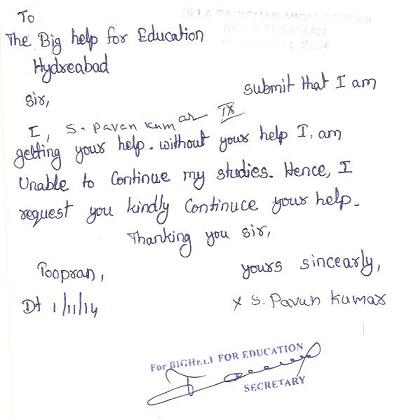 To
The Big help for Education
Hydreabad
Sir,
submit that I am
I, S. Pavan Kumar IX
getting your help. without your help I, am
Unable to Continue my studies. Hence, I
request you kindly Continuce your help.
Thanking you sir,
Toopran,
yours sincearly,
Dt 1/11/14
x S. Pavan Kumar
For BIGHeLl FOR EDUCATION
SECRETARY